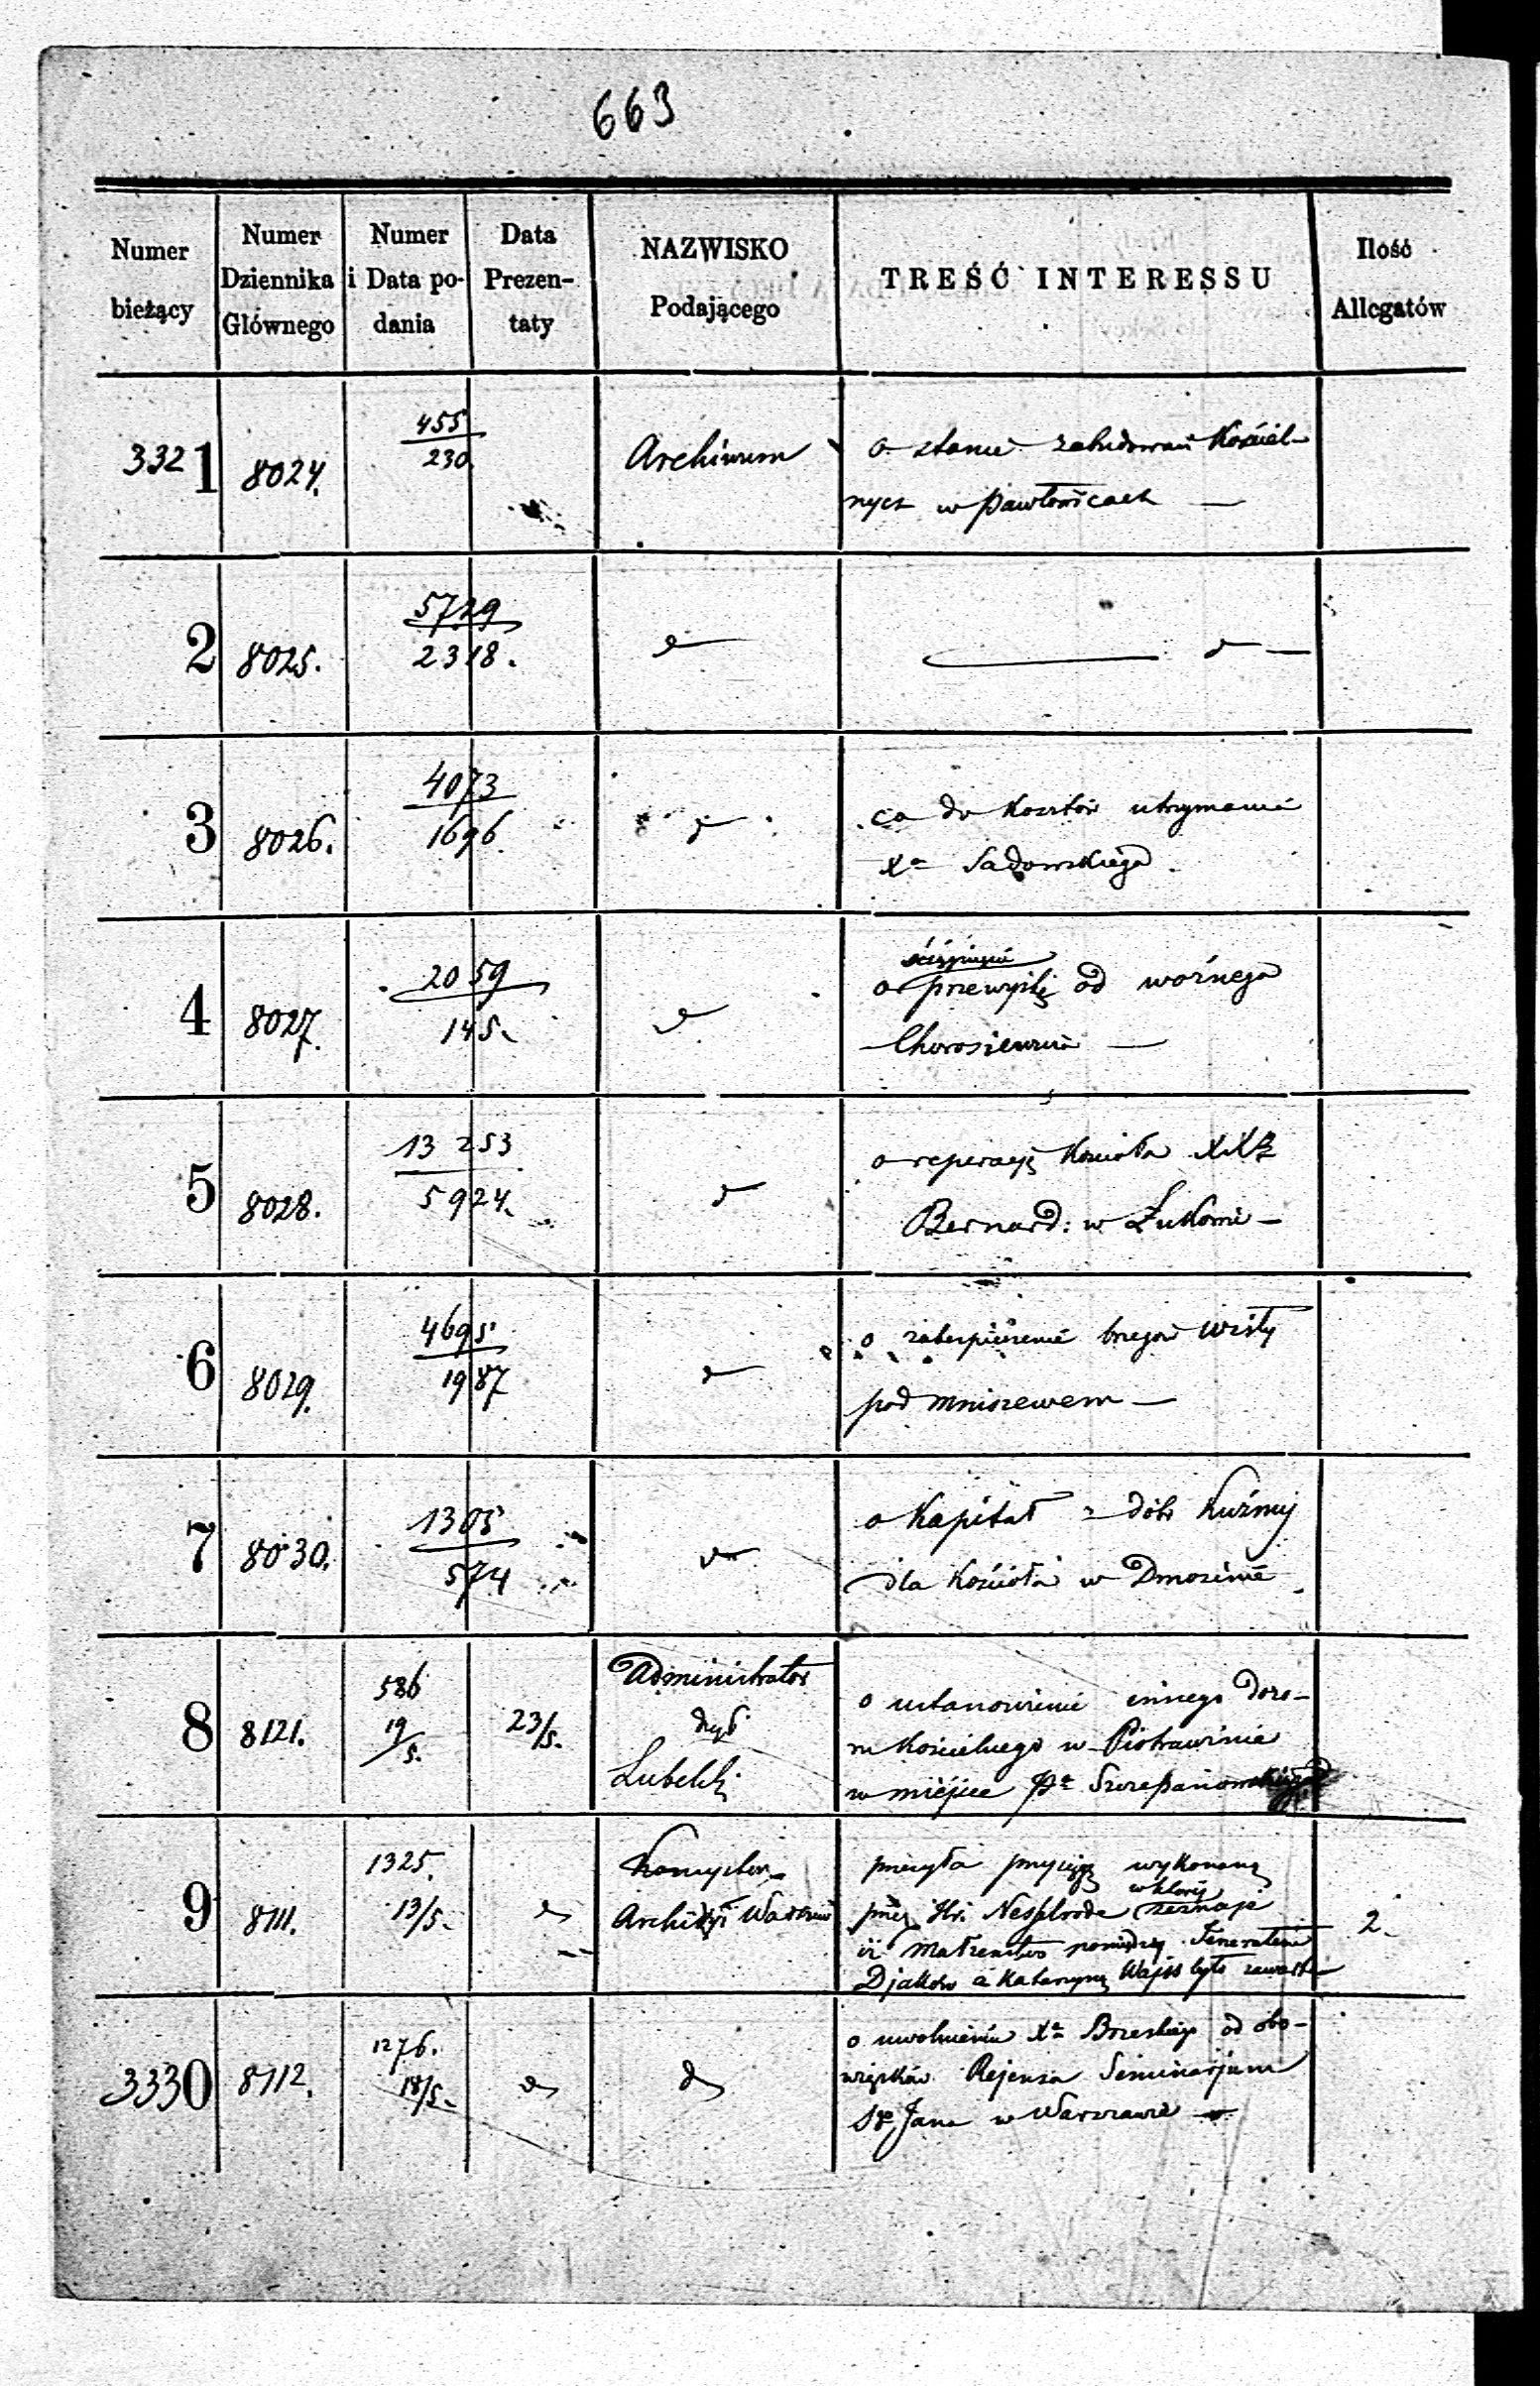 663
Numer bieżący
Numer Dziennika Głównego
Numer i Data podania
Data Prezentaty
NAZWISKO Podającego
TREŚĆ INTERESSU
Ilość Allegatów
3321 8024. 455/230 Archiwum o stanie zabudowań Kościel-
nych w Pawłowicach —
2 8025. 5729/2318. d d —
3 8026. 4073/1696 d co do kosztów utrzymania
Xa Sadowskiego.
4 8027. 2059/145. d ściągnięcie
o przewyżkę od woźnego
—
5 8028. 13253/5924. d o reperacyę Kościoła XX
Bernard: w —
6 8029. 4695/1987 d o zabezpieczenie brzegów Wisły
pod Mniszewem —
7 8030. 1305/574 d o Kapitał z dóbr Kuźmy
dla Kościoła w Dmosinie
8 8121. 586 19/5. 23/5. Administrator
dyec
Lubelski
o ustanowienie innego dozo-
ru Kościelnego w Piotrawinie
w miejsce Pa Szczepanowskiego
9 8111. 1325. 13/5. d Konsystorz
Archidyi Warszaw
przesyła przysięgę wykonaną
w której
przez Hr. Nesselrode zeznaje
iż małżeństwo pomiędzy
Djakow a Katarzyną Wajss było zawarte
2.
3330 8112. 1276. 18/5. d d o uwolnieniu Xa Brzeskiego od obo-
wiązków Rejensa Seminarjum
Sgo Jana w Warszawie —